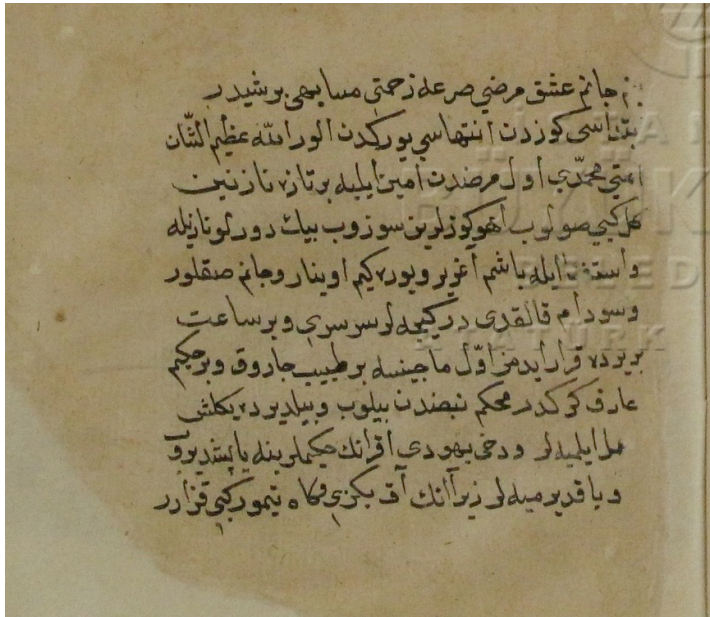 جانم عشق مرضي صرعه زحمتى مشابهى برشيدر
ابتداسى كوزدن انتهاسي يوركدن الور الله عظيم الشان
امتي محمدي اول مرضدن امين ايليه بر تازه نازنين
كل كبي صولوب اهو كوزلرين سوزوب بيك دورلو نازيله
واستغنا ايله باشم اغرير ويوره كيم اوينار وجانم صقلور
وسودام قالقدى در كيجه لر سرسرى وبرساعت
بريرده قرار ايدمز اول ماجينسه بر طبيب حاذوق وبر حكيم
عارف كركدر محكم نبضندن بيلوب وبيلديرده يكلش
عمل ايلميه لر ودخى يهودي افرانك حكيملرينه ياپشديروب
وباقديرميه لر زيرا انك اق بكزى وكاه تيمور كبي قزارر